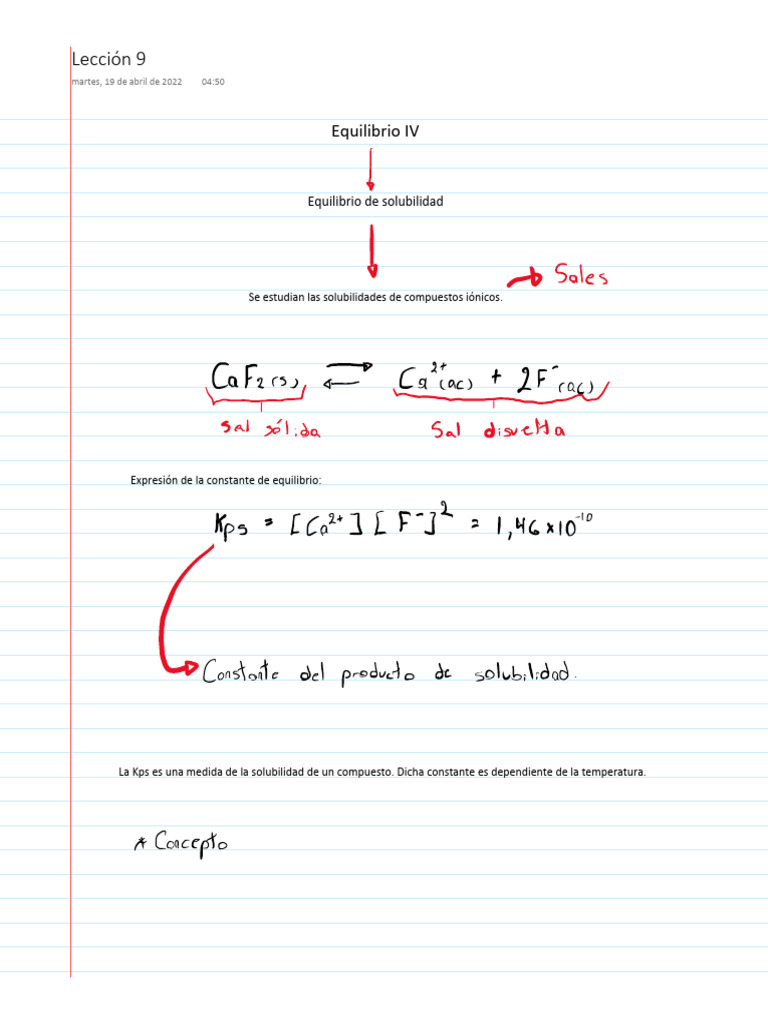 Lección 9
martes, 19 de abril de 2022 04:50
Equilibrio IV
Equilibrio de solubilidad
Sales
Se estudian las solubilidades de compuestos iónicos.
CaF₂(s) ⇌ Ca²⁺(ac) + 2F⁻(ac)
Sal sólida Sal disuelta
Expresión de la constante de equilibrio:
Kps = [Ca²⁺][F⁻]² = 1,46×10⁻¹⁰
Constante del producto de solubilidad.
La Kps es una medida de la solubilidad de un compuesto. Dicha constante es dependiente de la temperatura.
* Concepto